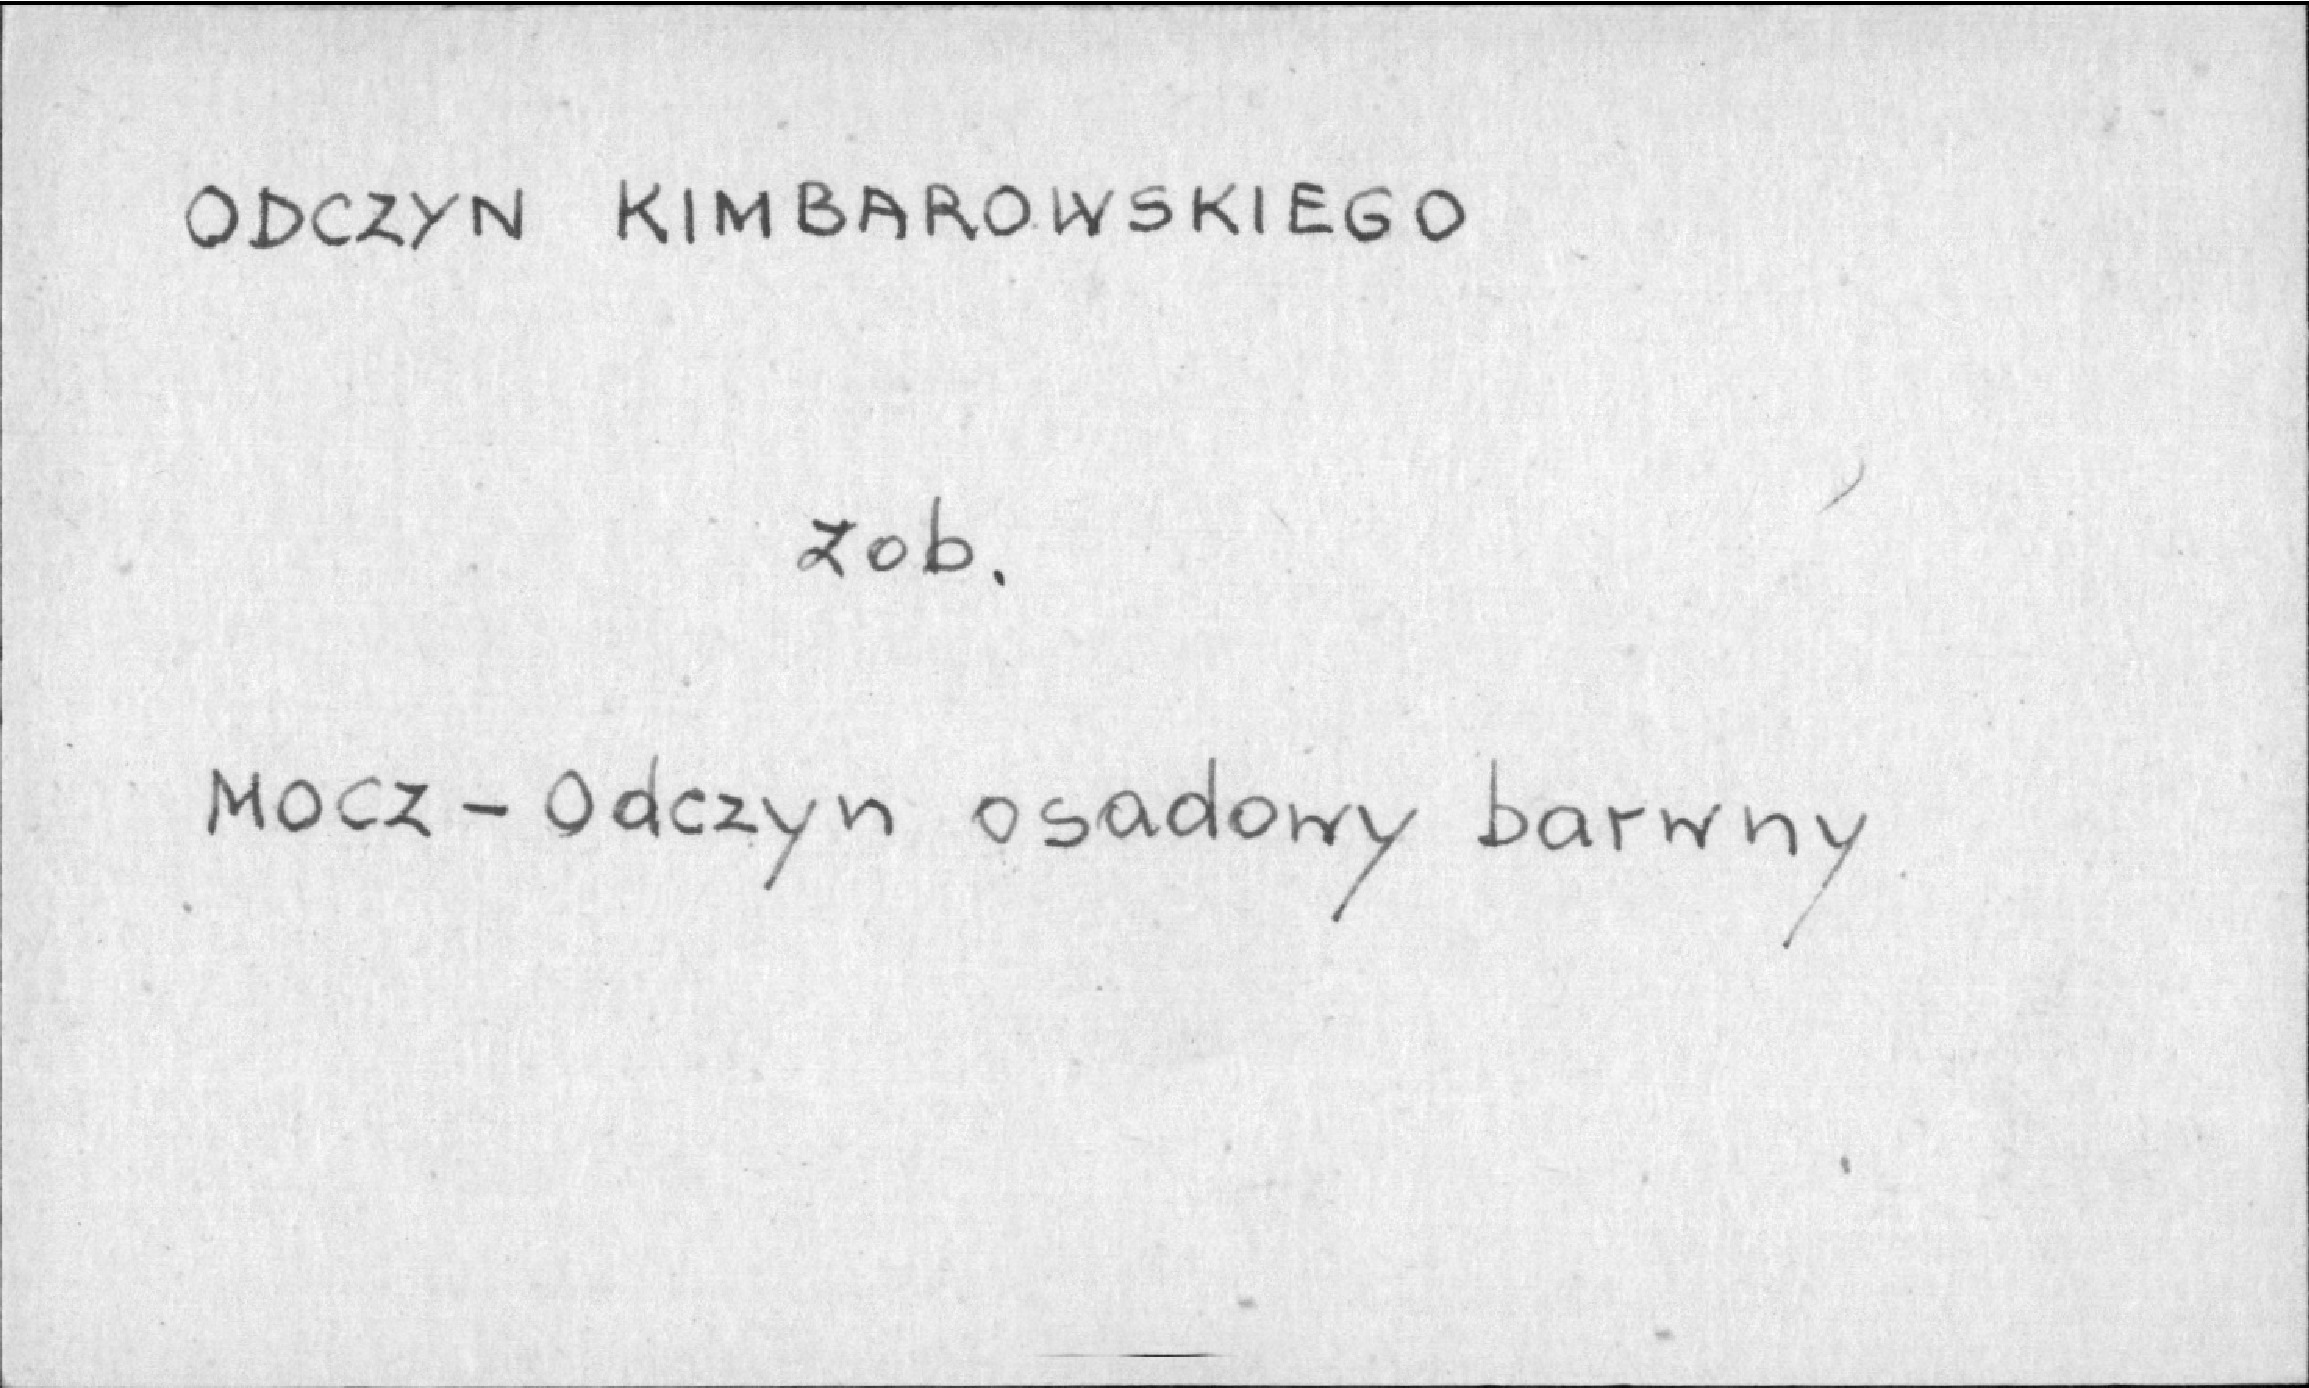 ODCZYN KIMBAROWSKIEGO
zob.
MOCZ - Odczyn osadowy barwny